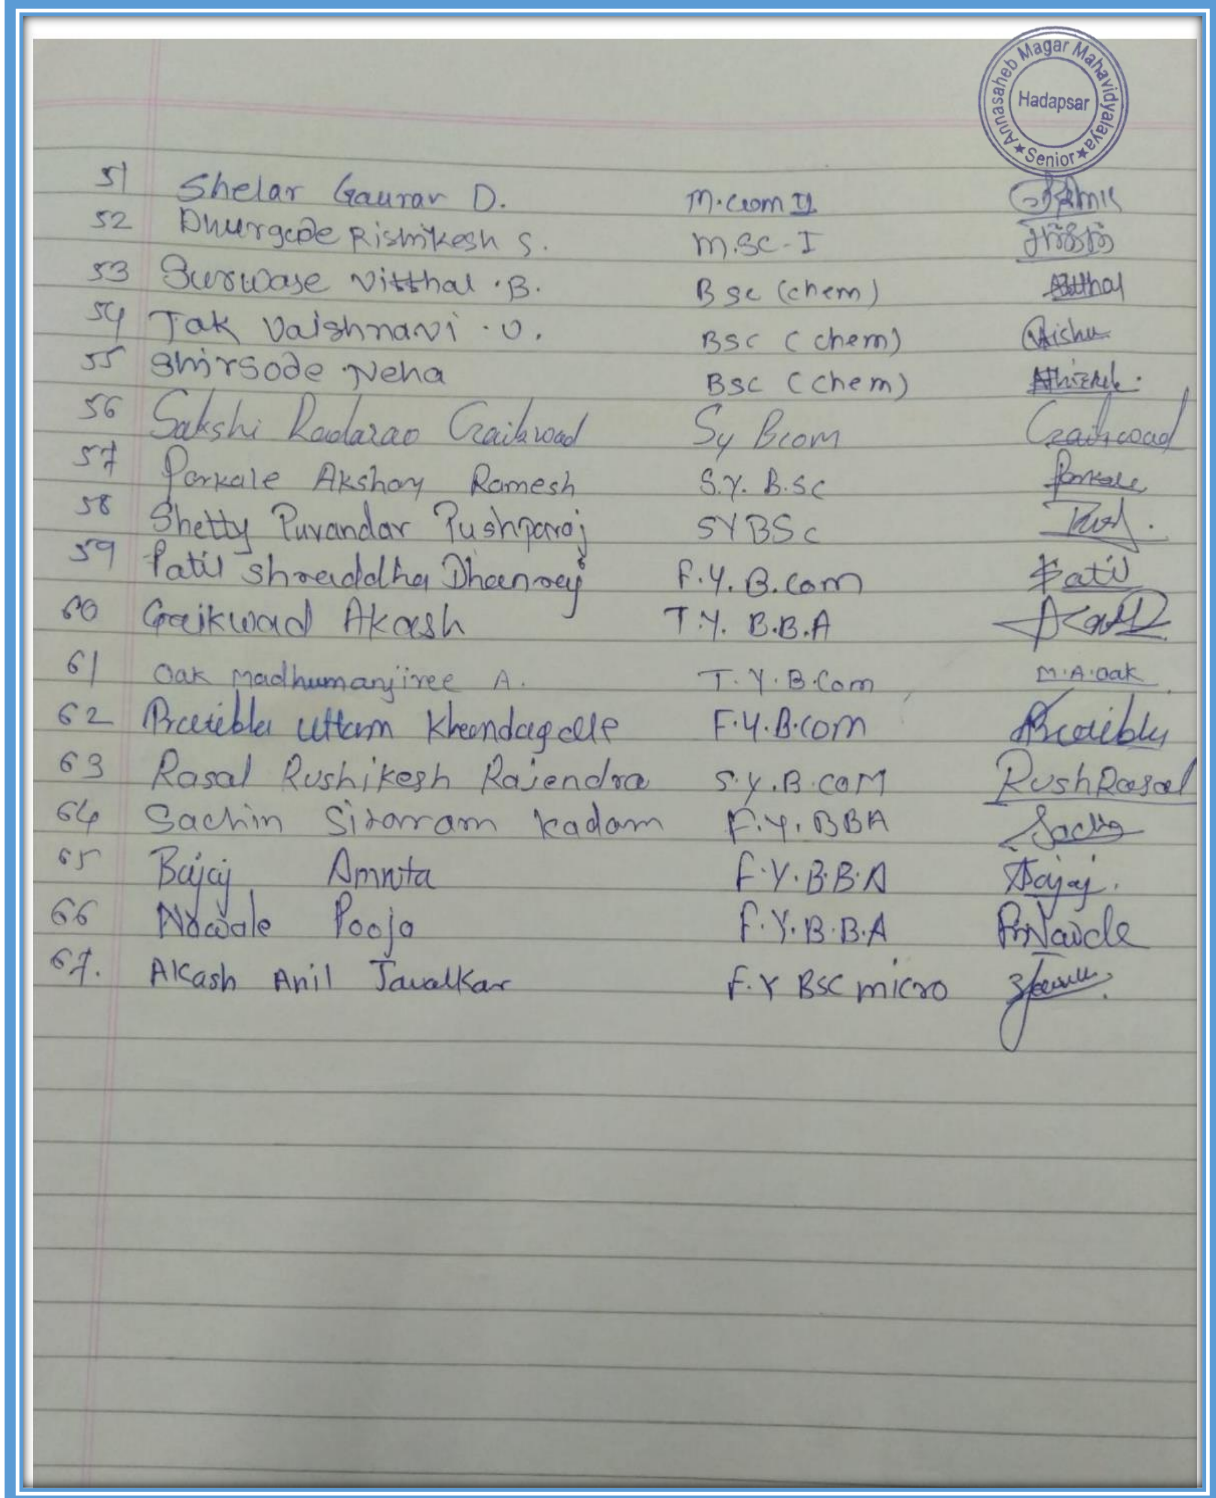 Annasaheb Magar Mahavidyalaya
Hadapsar
★ Senior ★
51 Shelar Gaurav D. M.Com II
52 Dhurgude Rishikesh S. M.Sc-I
53 Surwase Vitthal .B. Bsc (chem) Vitthal
54 Tak Vaishnavi .U. BSC (chem) Vaishu
55 Shirsode Neha BSC (chem)
56 Sakshi Gaikwad Sy Bcom Gaikwad
57 Parkale Akshay Ramesh S.Y. B.Sc Parkale
58 Shetty Purandar Pushparaj SYBSc
59 Patil Shraddha Dhanraj F.Y.B.com Patil
60 Gaikwad Akash T.Y. B.B.A Akash
61 Oak Madhumanjiree A. T.Y.B.Com M.A.Oak
62 Uttam F.Y.B.com
63 Rasal Rushikesh Rajendra S.Y.B.COM RushRasal
64 Sachin Sitaram Kadam F.Y.BBA Sachin
65 Bajaj Amruta F.Y.B.B.A Bajaj.
66 Nawale Pooja F.Y.B.B.A
67. Akash Anil Javalkar F.Y BSC micro